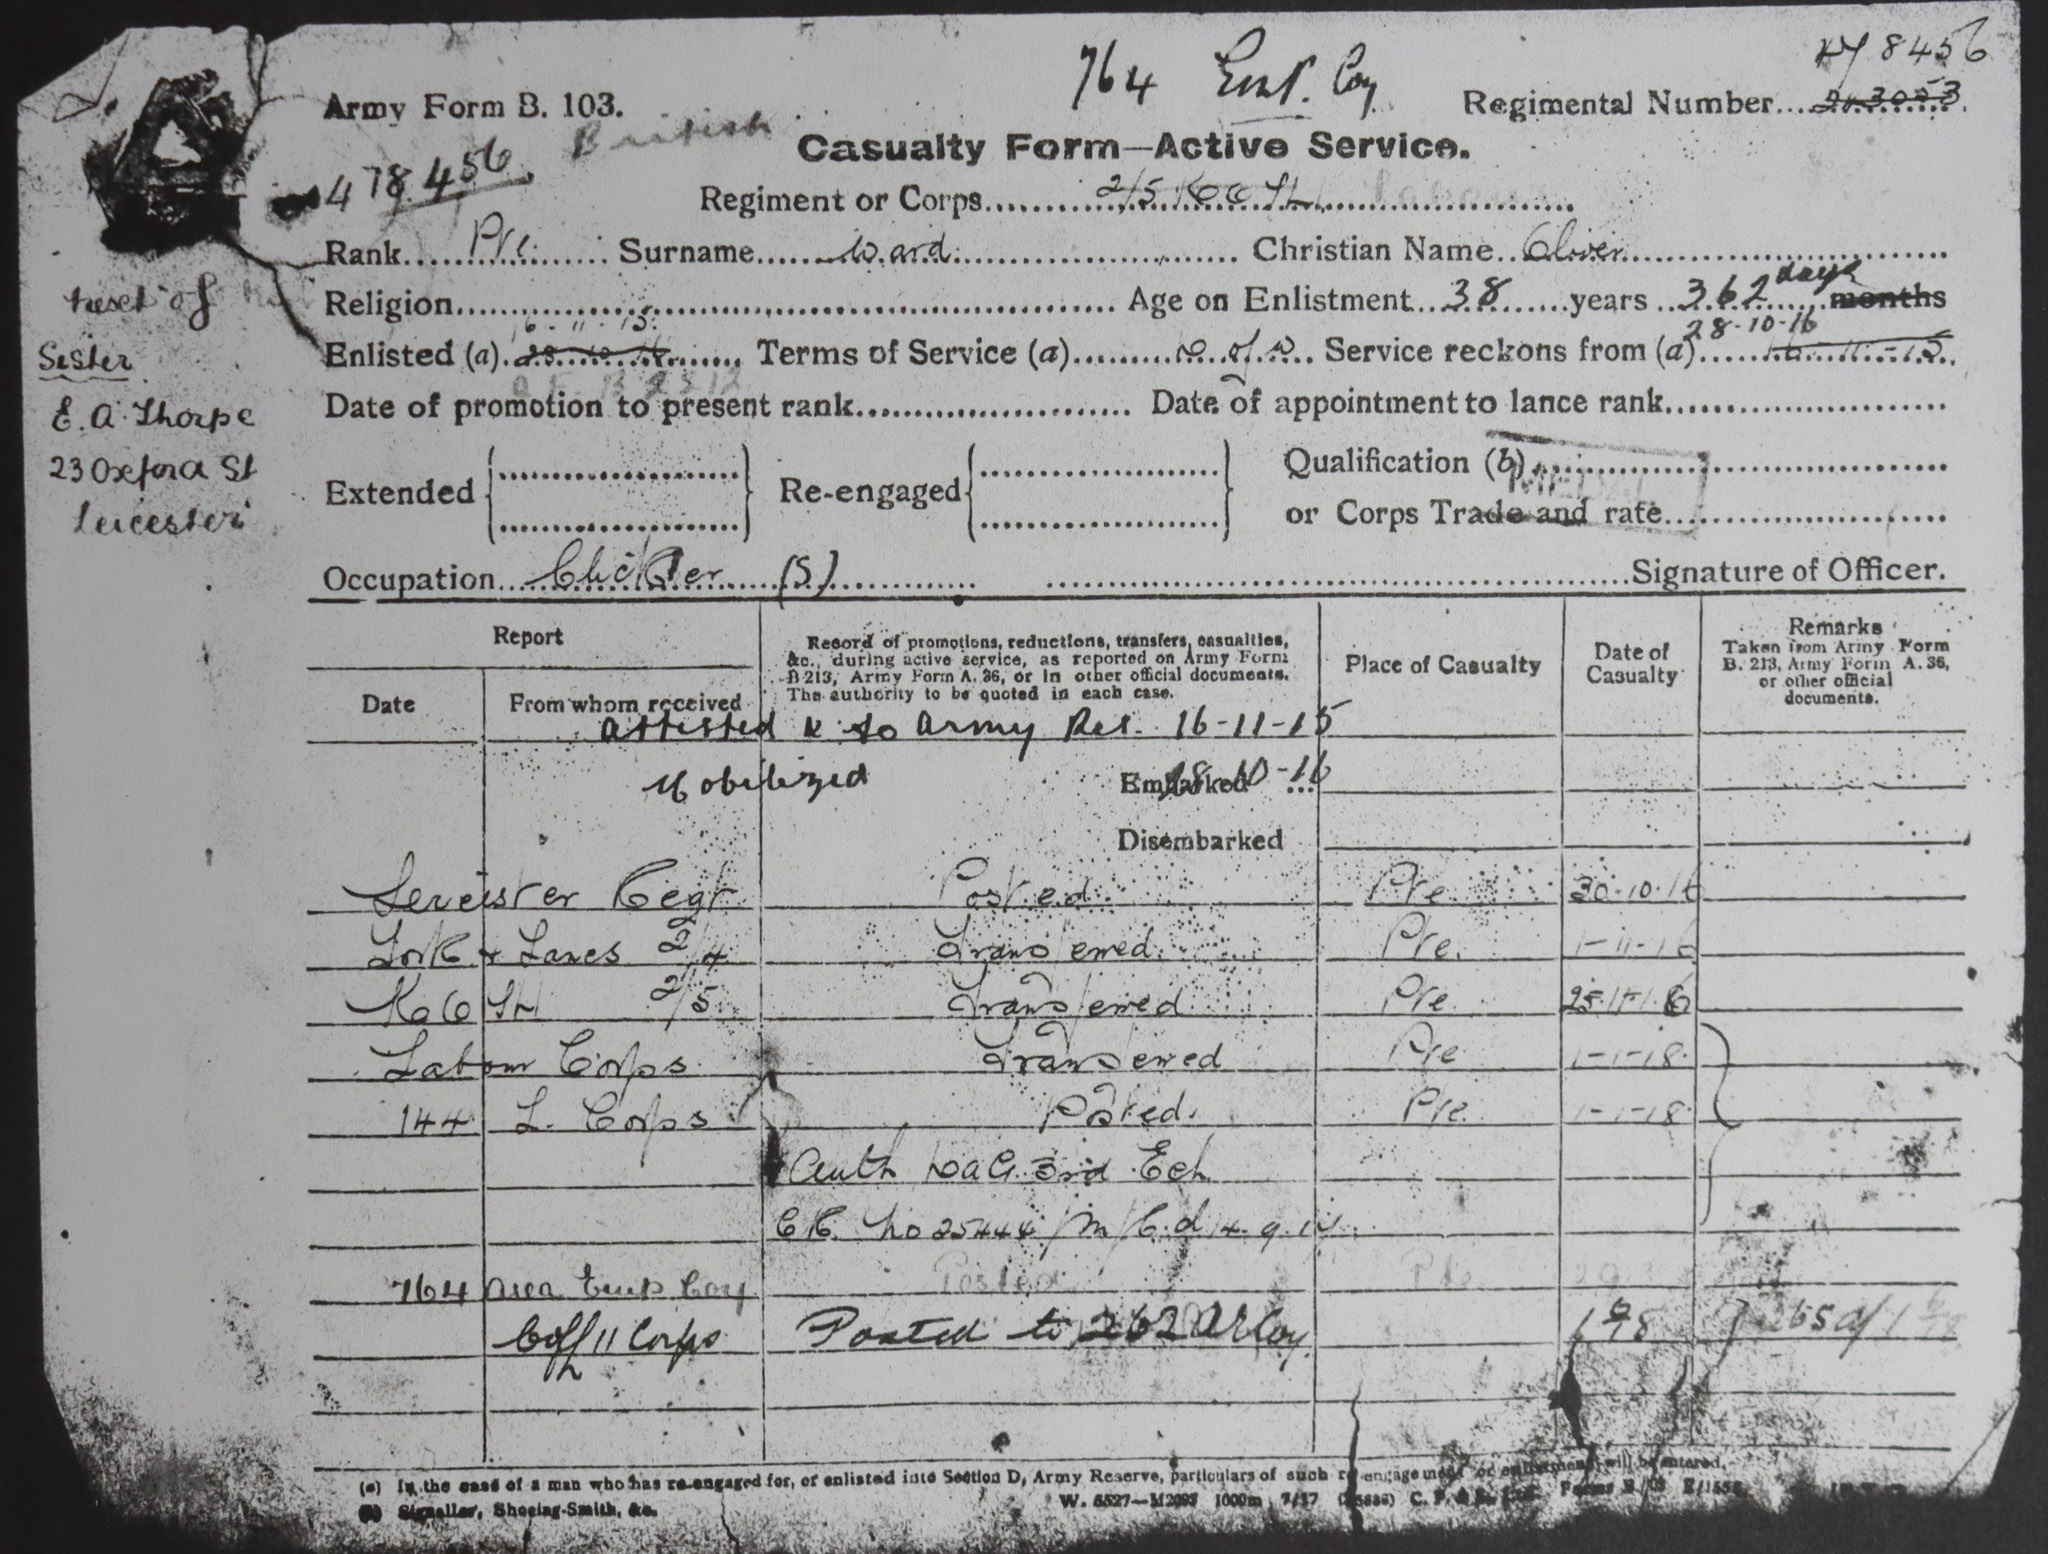 764 Emp. Coy
478456
8456
Army Form B. 103.
British
Regimental Number
Casualty Form—Active Service.
Regiment or Corps 2/5 KOYLI Labour
Rank Pte. Surname Ward Christian Name Oliver
Religion Age on Enlistment 38 years 362 days months
16-11-15
28-10-16
Enlisted (a) 28.10.16 Terms of Service (a) D of W Service reckons from (a) 16-11-15
Date of promotion to present rank Date of appointment to lance rank
Extended Re-engaged Qualification (b)
or Corps Trade and rate
Occupation Clicker (S) Signature of Officer.
of
Sister
E. A. Thorpe
23 Oxford St
Leicester
Report
Date From whom received
Record of promotions, reductions, transfers, casualties, &c., during active service, as reported on Army Form B 213, Army Form A. 36, or in other official documents. The authority to be quoted in each case.
Place of Casualty
Date of Casualty
Remarks
Taken from Army Form B. 213, Army Form A. 36, or other official documents.
Attested & to Army Res. 16-11-15
Mobilized Embarked 28-10-16
Disembarked
Leicester Regt Posted Pte 30-10-16
York & Lancs 2/4 Transferred Pte. 1-11-16
KOYLI 2/5 Transferred Pte 25-11-16
Labour Corps Transferred Pte 1-1-18
144 L. Corps Posted. Pte. 1-1-18
Auth DAG 3rd Ech
CR No 25444/M/C. d 14.9.17
764 Area Emp Coy Posted Pte
11 Corps Posted to 262 Coy 1 6/18
(a) In the case of a man who has re-engaged for, or enlisted into Section D, Army Reserve, particulars of such re-engagement or enlistment will be entered.
(b) Signaller, Shoeing-Smith, &c.
W. 5527—M2093 1000m 7/17